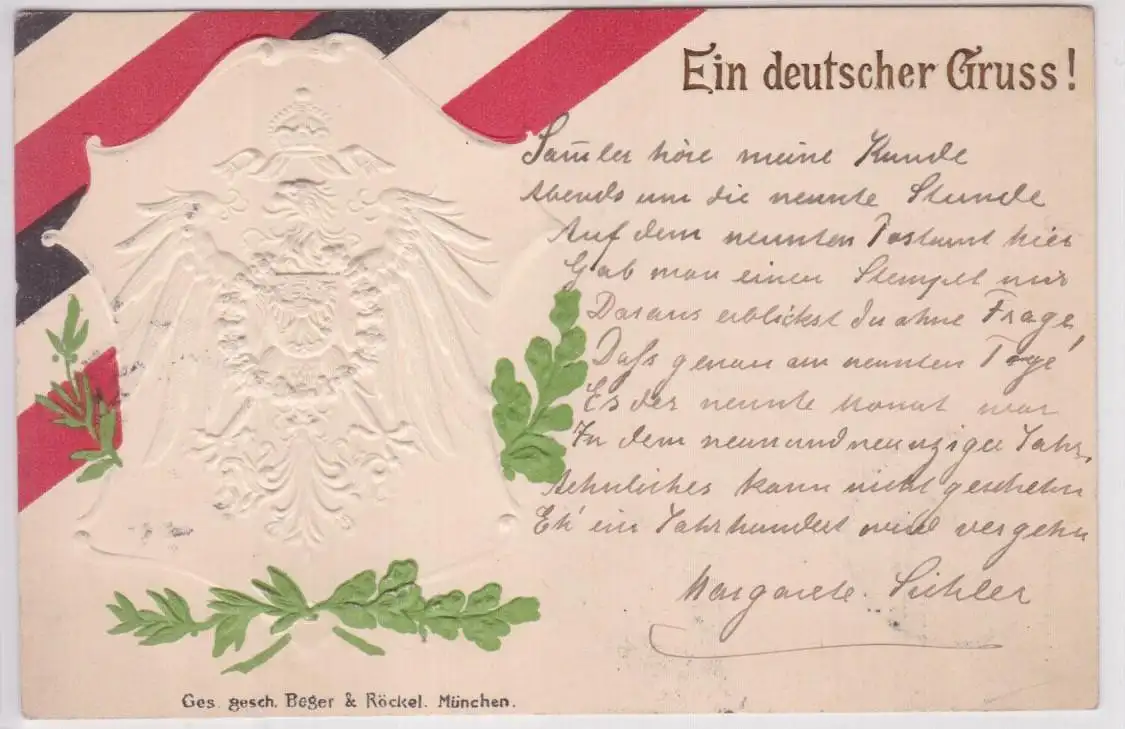 Ein deutscher Gruss!
Sam̄ler höre meine Kunde
Abends um die neunte Stunde
Auf dem neunten Postamt hier
Gab man einen Stempel mir
Daraus erblickst du ohne Frage,
Daß genau am neunten Tage
Es der neunte Monat war
In dem neunundneunziger Jahr,
Aehnliches kann nicht geschehn
Eh' ein Jahrhundert wird vergehn
Margarete
Ges. gesch. Beger & Röckel. München.